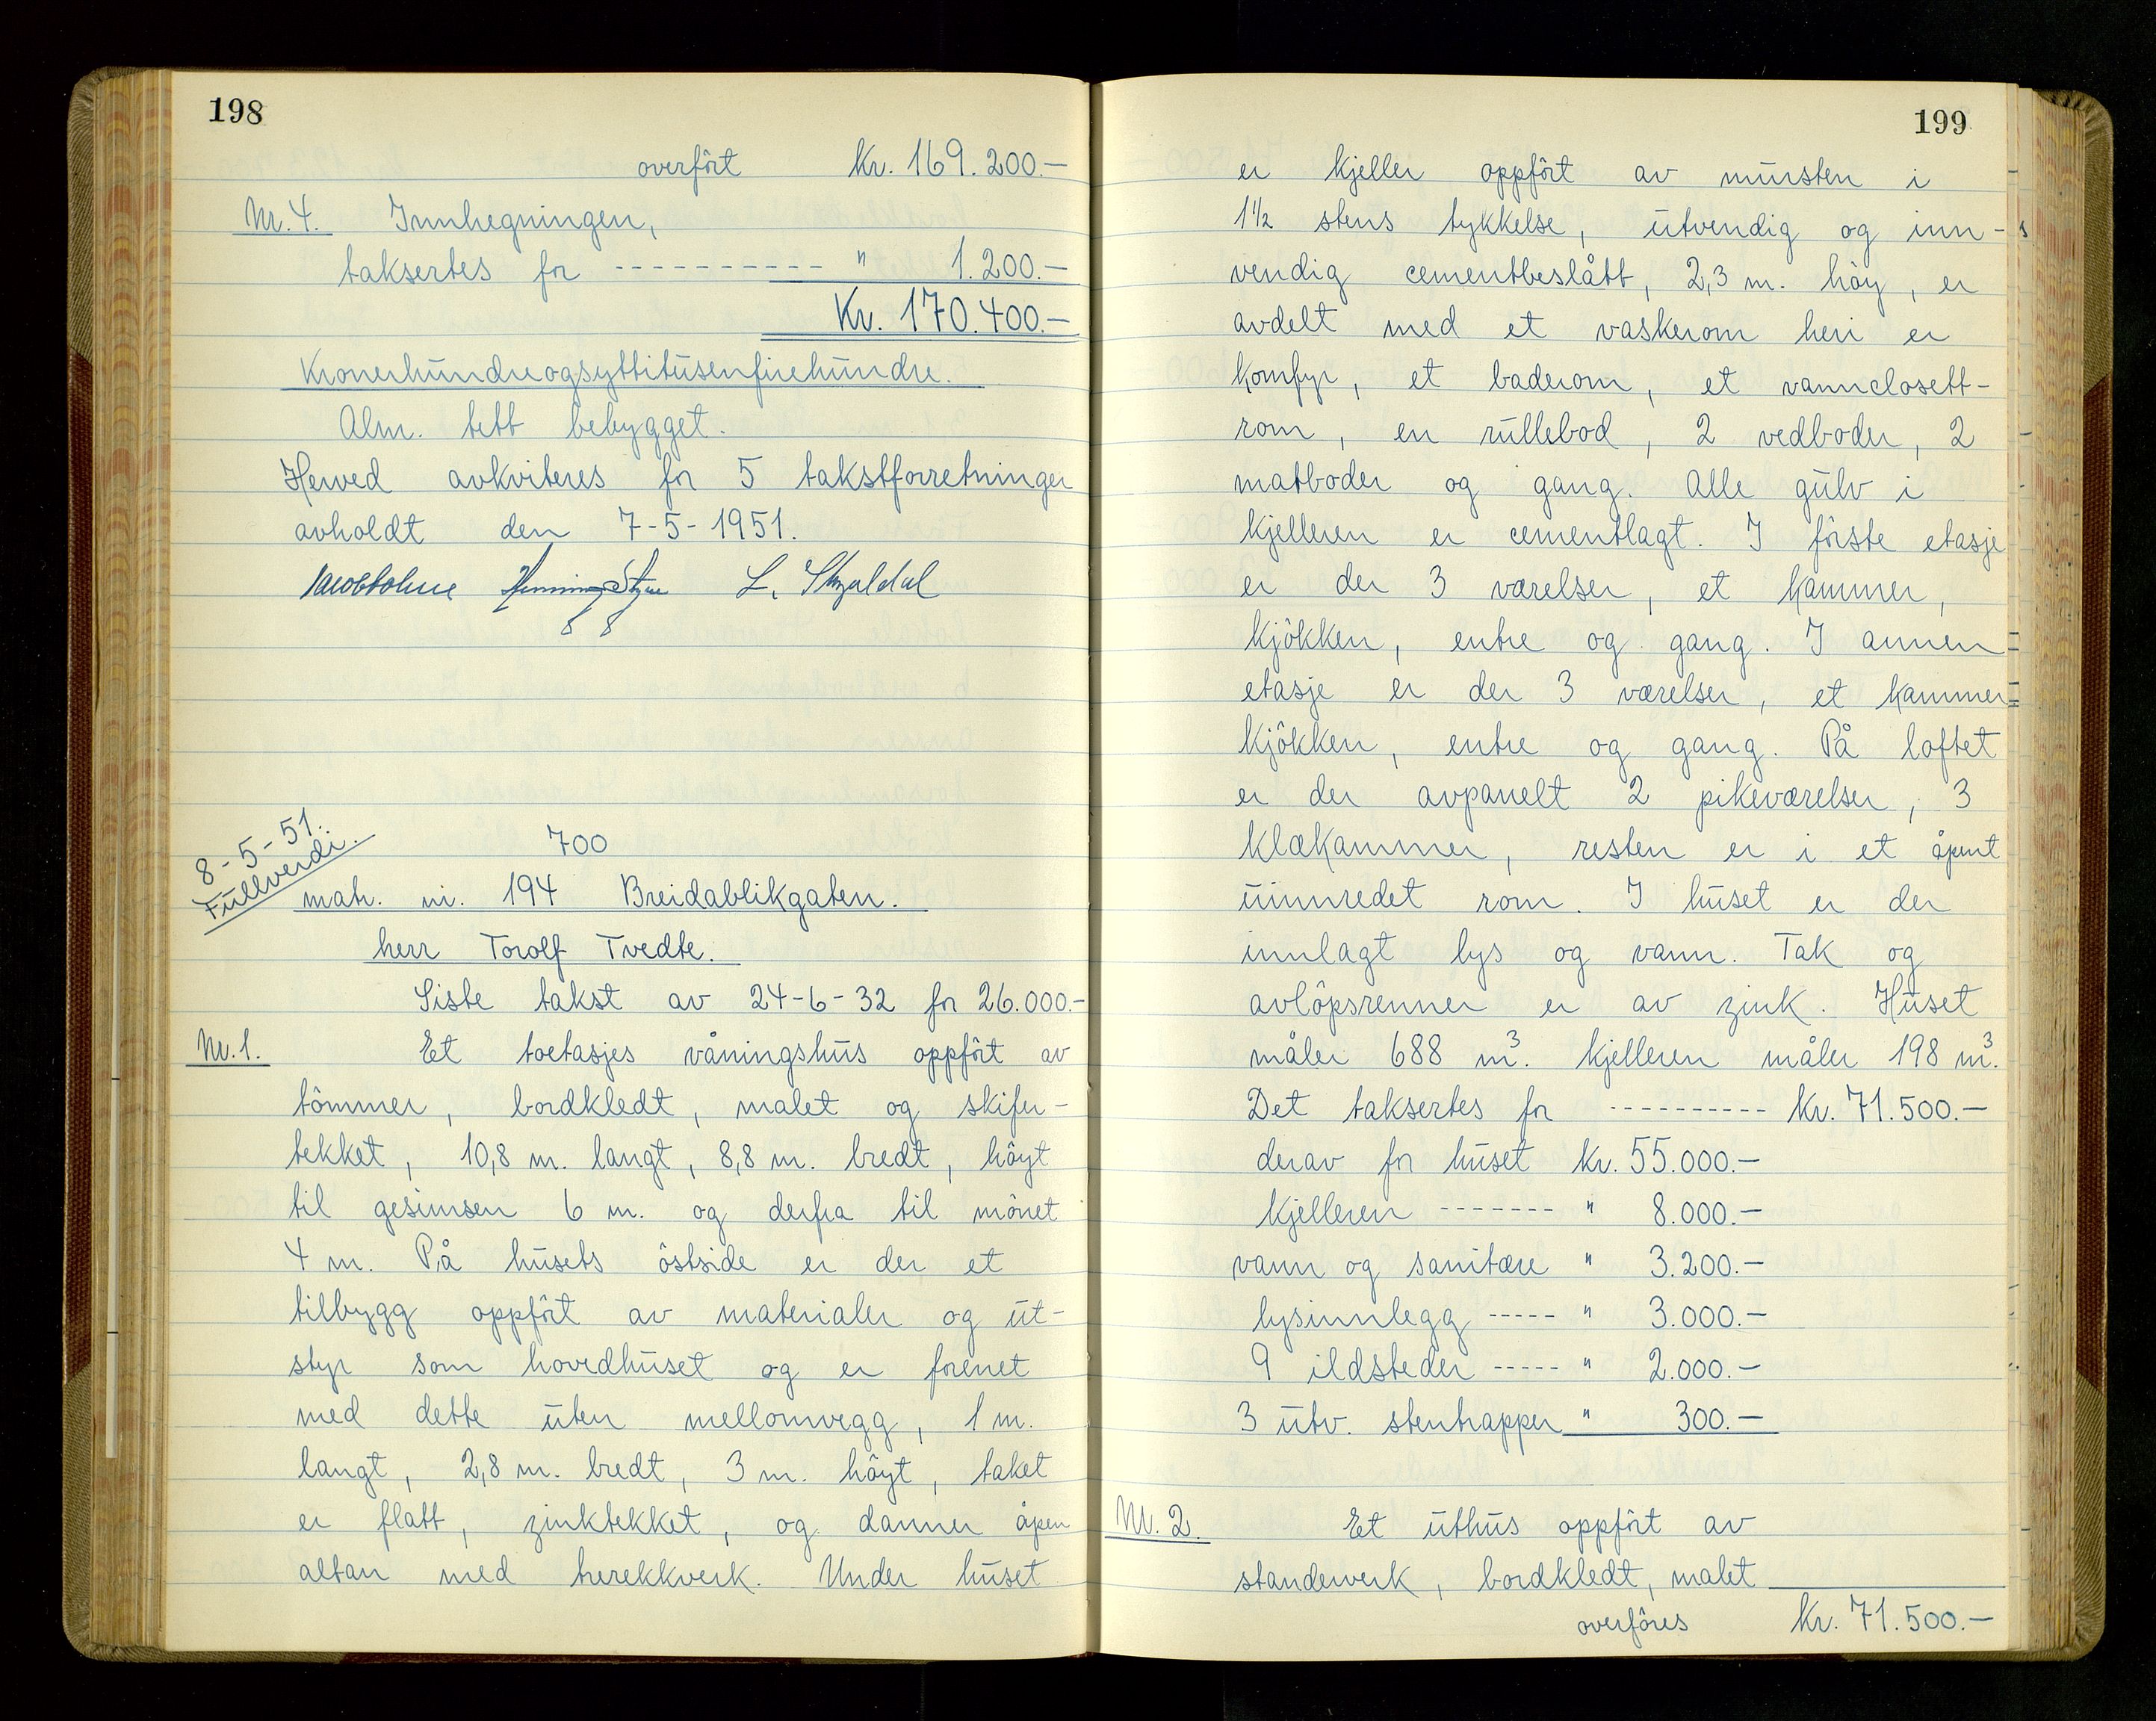 198
overfört Kr. 169.200.-
Nr. 4. Innhegningen,
taksertes for ---------- " 1.200.-
Kr. 170.400.-
Kronerhundreogsyttitusenfirehundre.
Alm. tett bebygget.
Herved avkviteres for 5 takstforretninger
avholdt den 7-5-1951.
L.
8-5-51.
Fullverdi.
700
matr. nr. 194 Breidablikgaten.
herr Torolf Tvedte.
Siste takst av 24-6-32 for 26.000.-
Nr. 1. Et toetasjes våningshus oppfört av
tömmer, bordkledt, malet og skifer-
tekket, 10,8 m. langt, 8,8 m. bredt, höyt
til gesimsen 6 m. og derfra til mönet
4 m. På husets östside er der et
tilbygg oppfört av materialer og ut-
styr som hovedhuset og er forenet
med dette uten mellomvegg, 1 m.
langt, 2,8 m. bredt, 3 m. höyt, taket
er flatt, zinktekket, og danner åpen
altan med trerekkverk. Under huset
199
er kjeller oppfört av mursten i
1 1/2 stens tykkelse, utvendig og inn-
vendig cementbeslått, 2,3 m. höy, er
avdelt med et vaskerom heri er
komfyr, et baderom, et vannclosett-
rom, en rullebod, 2 vedboder, 2
matboder og gang. Alle gulv i
kjelleren er cementlagt. I förste etasje
er der 3 værelser, et kammer,
kjökken, entre og gang. I annen
etasje er der 3 værelser, et kammer
kjökken, entre og gang. På loftet
er der avpanelt 2 pikeværelser, 3
klækammer, resten er i et åpent
uinnredet rom. I huset er der
innlagt lys og vann. Tak og
avlöpsrenner er av zink. Huset
måler 688 m³. Kjelleren måler 198 m³.
Det taksertes for ---------- Kr. 71.500.-
derav for huset Kr. 55.000.-
Kjelleren ------- " 8.000.-
vann og sanitære " 3.200.-
lysinnlegg ----- " 3.000.-
9 ildsteder ----- " 2.000.-
3 utv. stentrapper " 300.-
Nr. 2. Et uthus oppfört av
standerverk, bordkledt, malet
overföres Kr. 71.500.-